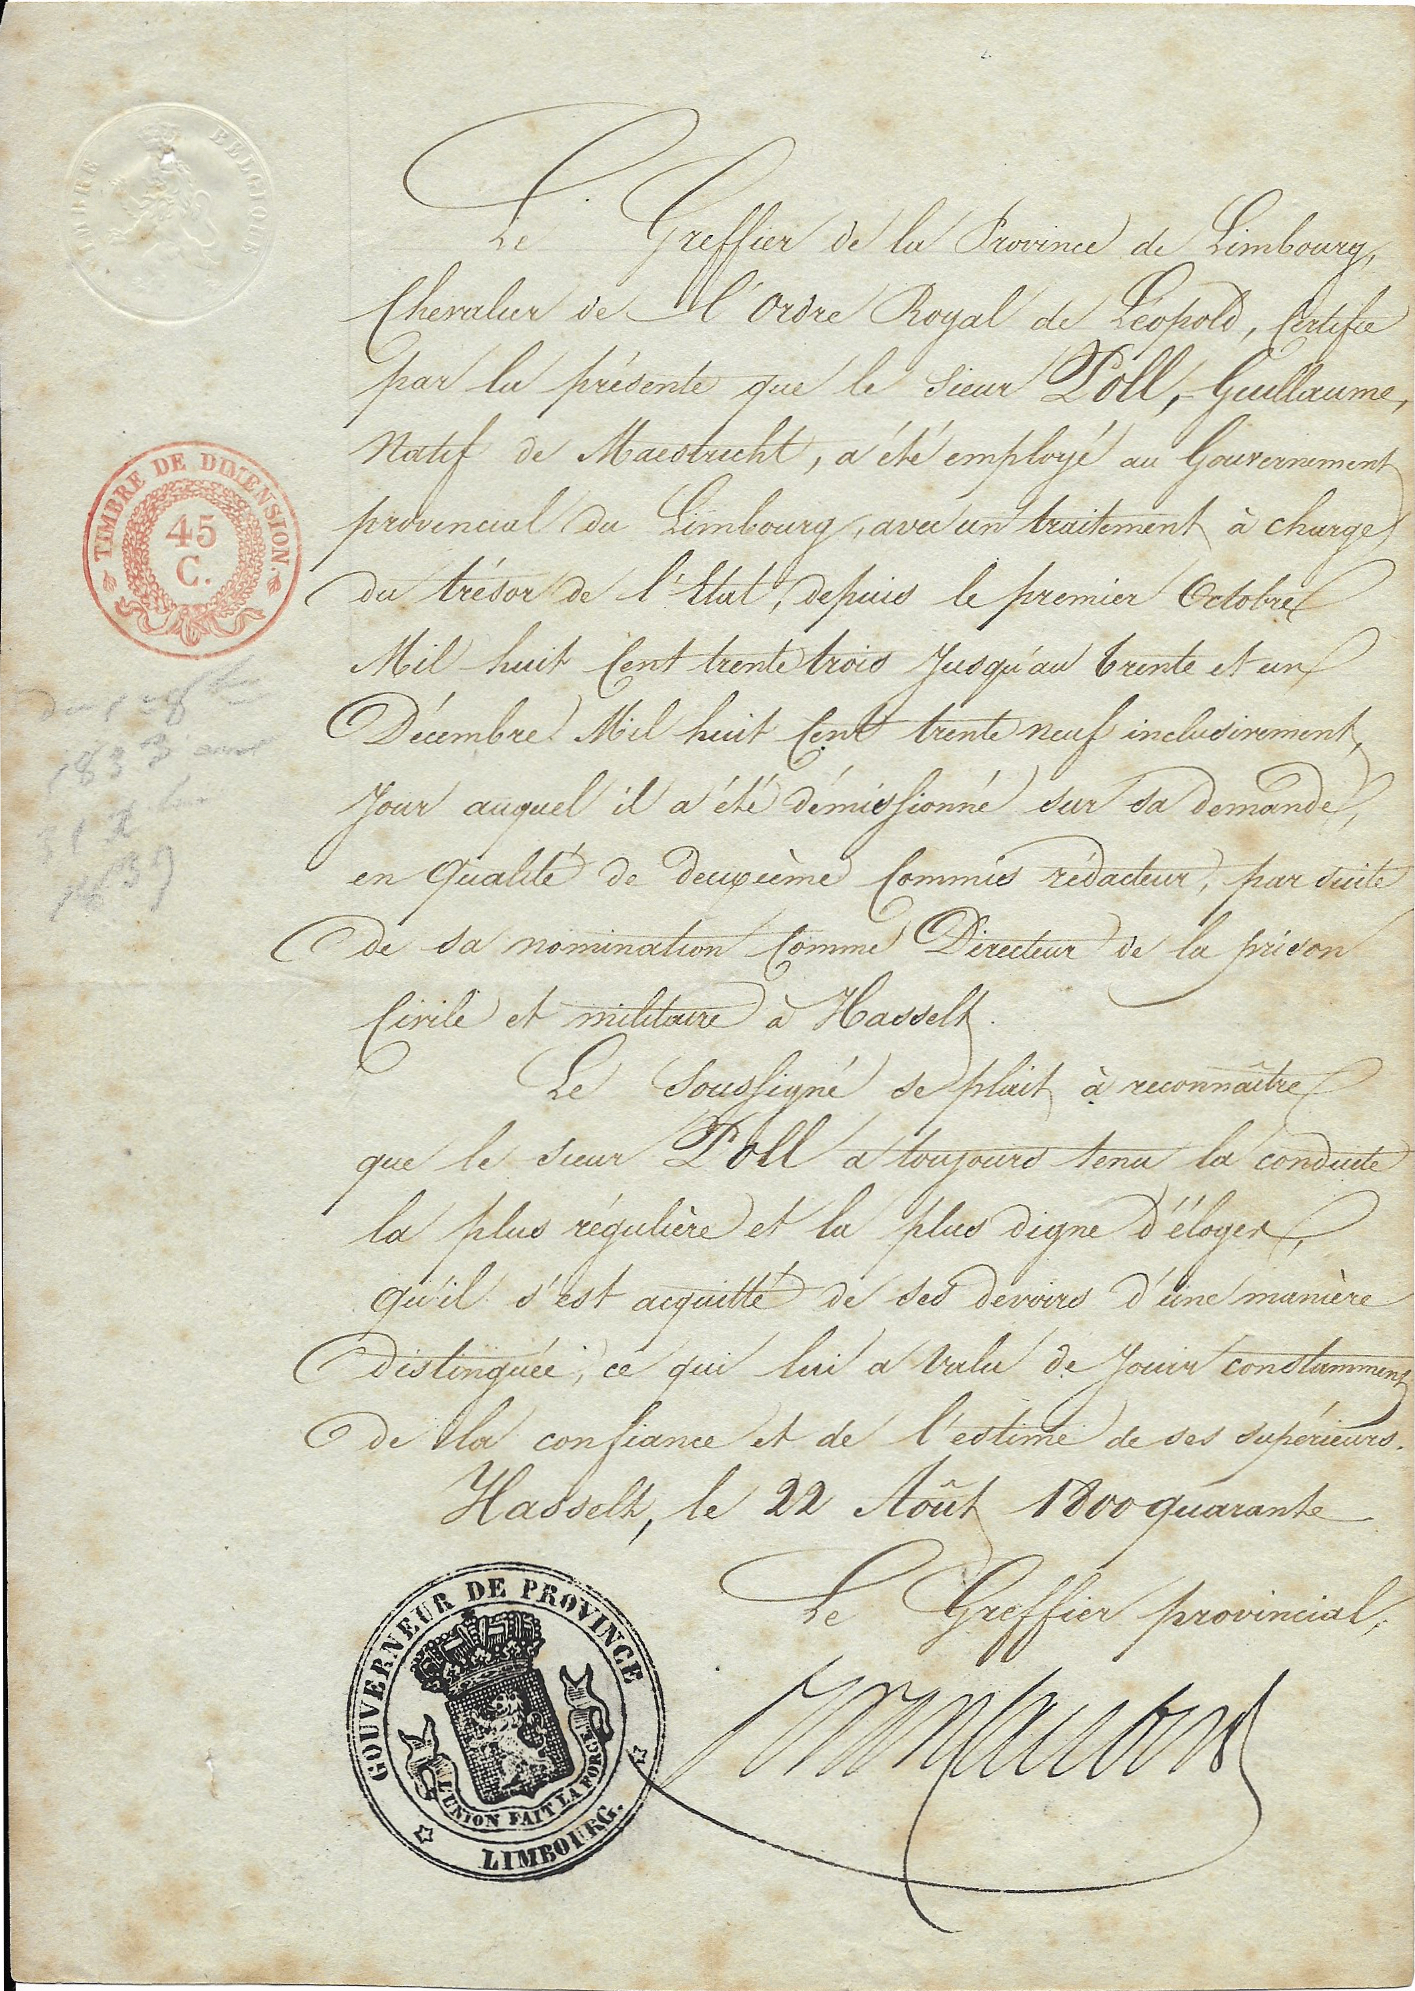 TIMBRE BELGIQUE
Le Greffier de la Province de Limbourg,
Chevalier de l'Ordre Royal de Léopold, Certifie
par la présente que le sieur Poll, Guillaume,
Natif de Maestricht, a été employé au Gouvernement
provincial du Limbourg, avec un traitement à charge
du trésor de l'Etat, depuis le premier Octobre
Mil huit Cent trente trois Jusqu'au trente et un
Décembre Mil huit Cent trente neuf inclusivement,
Jour auquel il a été démissionné sur sa demande,
en Qualité de deuxième Commis rédacteur, par suite
de sa nomination Comme Directeur de la prison
Civile et militaire à Hasselt.
TIMBRE DE DIMENSION.
45
C.
1833
31
1839
Le Soussigné se plait à reconnaître
que le sieur Poll a toujours tenu la conduite
la plus régulière et la plus digne d'éloges,
qu'il s'est acquitté de ses devoirs d'une manière
distinguée, ce qui lui a valu de Jouir constamment
de la confiance et de l'estime de ses supérieurs.
Hasselt, le 22 Août 1800 quarante
Le Greffier provincial,
GOUVERNEUR DE PROVINCE
L'UNION FAIT LA FORCE
LIMBOURG.